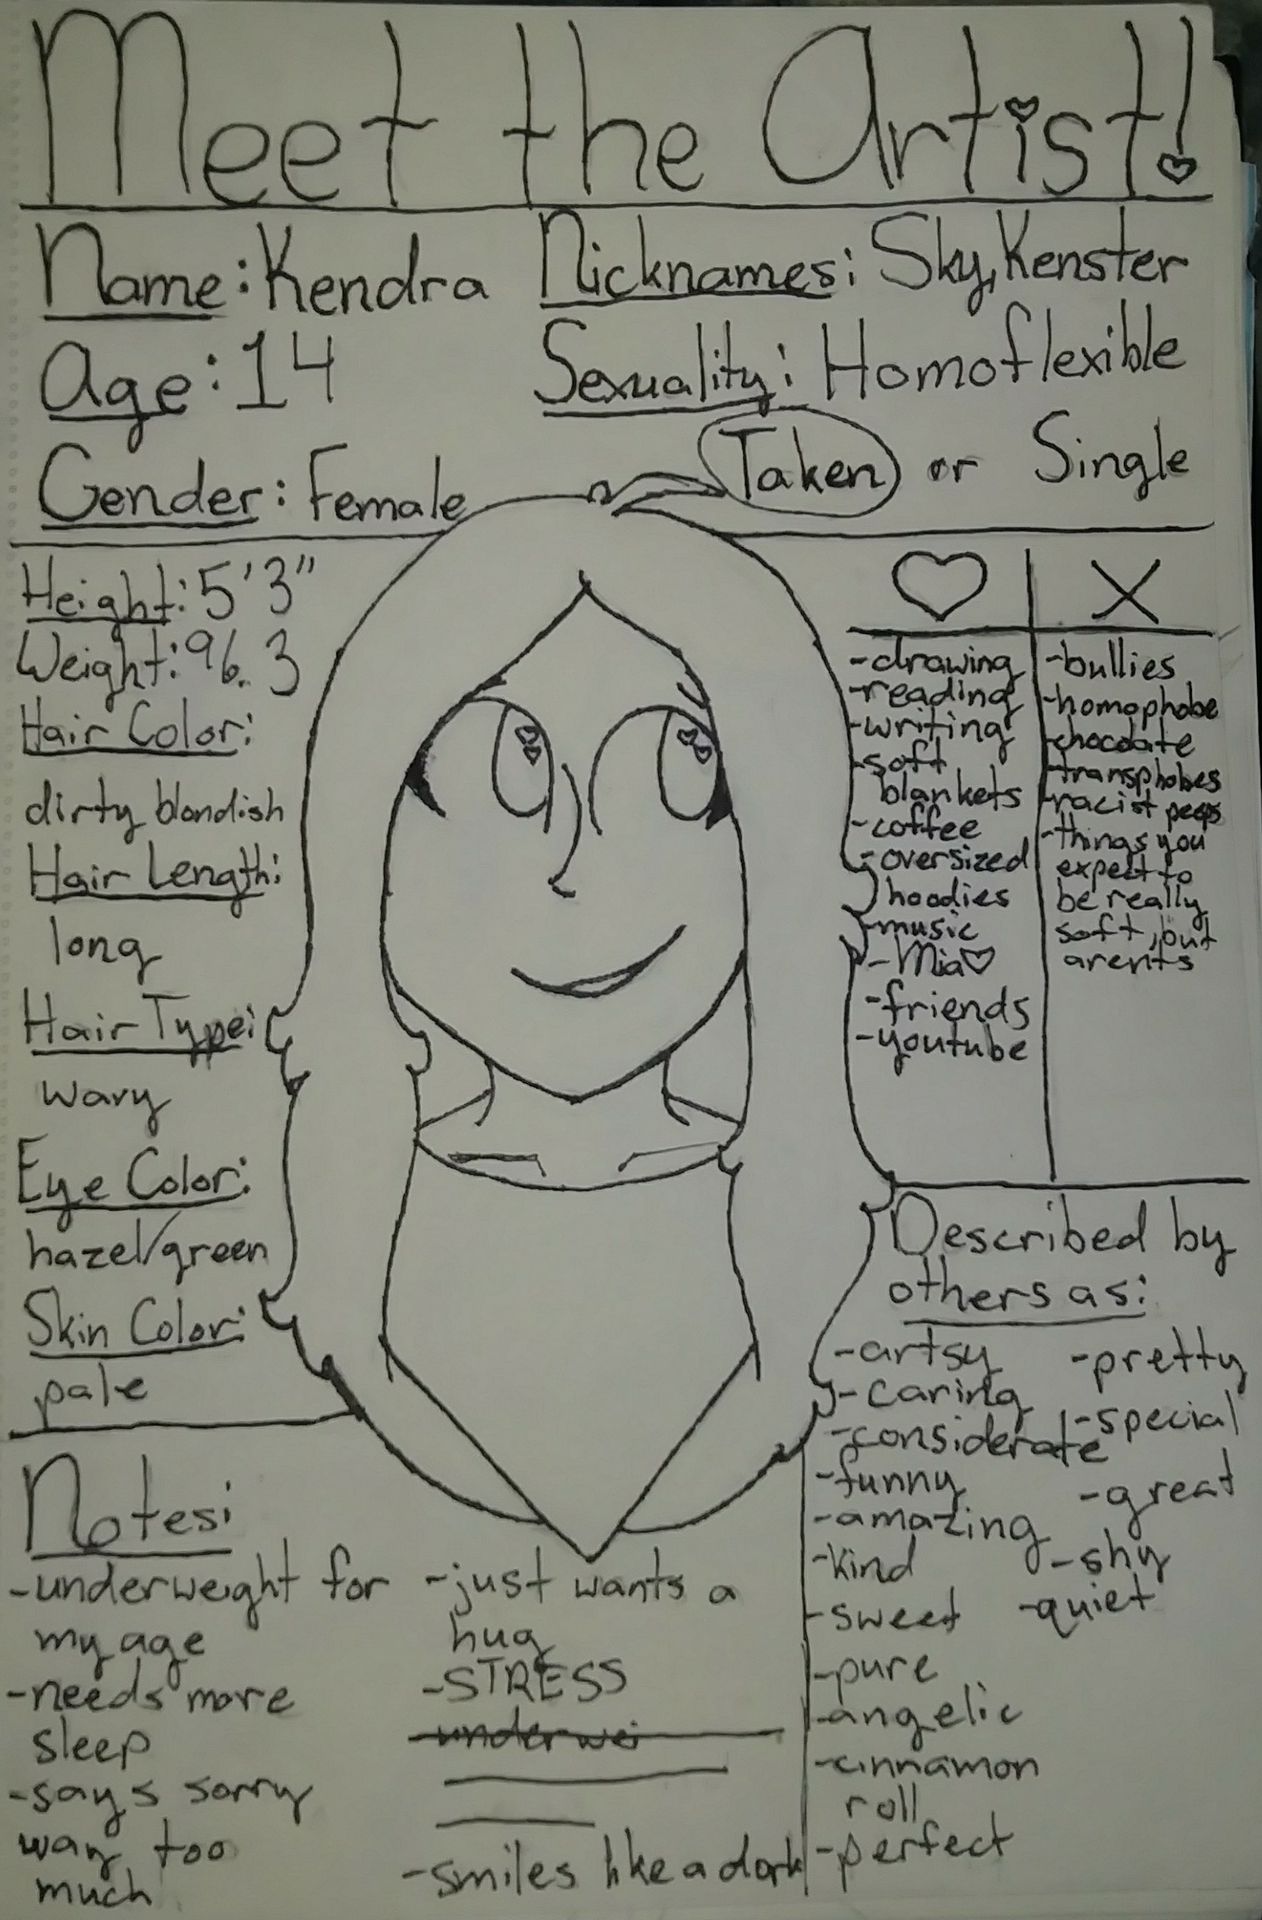 Meet the Artist!
Name: Kendra
Nicknames: Sky, Kenster
Age: 14
Sexuality: Homoflexible
Gender: Female
Taken or Single
Height: 5'3"
Weight: 96.3
Hair Color:
dirty blondish
Hair Length:
long
Hair Type:
wavy
Eye Color:
hazel/green
Skin Color:
pale
-drawing
-reading
-writing
-soft
blankets
-coffee
-oversized
hoodies
-music
-Mia♡
-friends
-youtube
X
-bullies
-homophobe
-chocoate
-transphobes
-racist peeps
-things you
expect to
be really
soft, but
arent's
Described by
others as:
-artsy
-caring
-considerate
-funny
-amazing
-kind
-sweet
-pure
-angelic
-cinnamon
roll
-perfect
-pretty
-special
-great
-shy
-quiet
Notes:
-underweight for
my age
-needs more
sleep
-says sorry
way too
much
-just wants a
hug
-STRESS
-underwei
-smiles like a dork